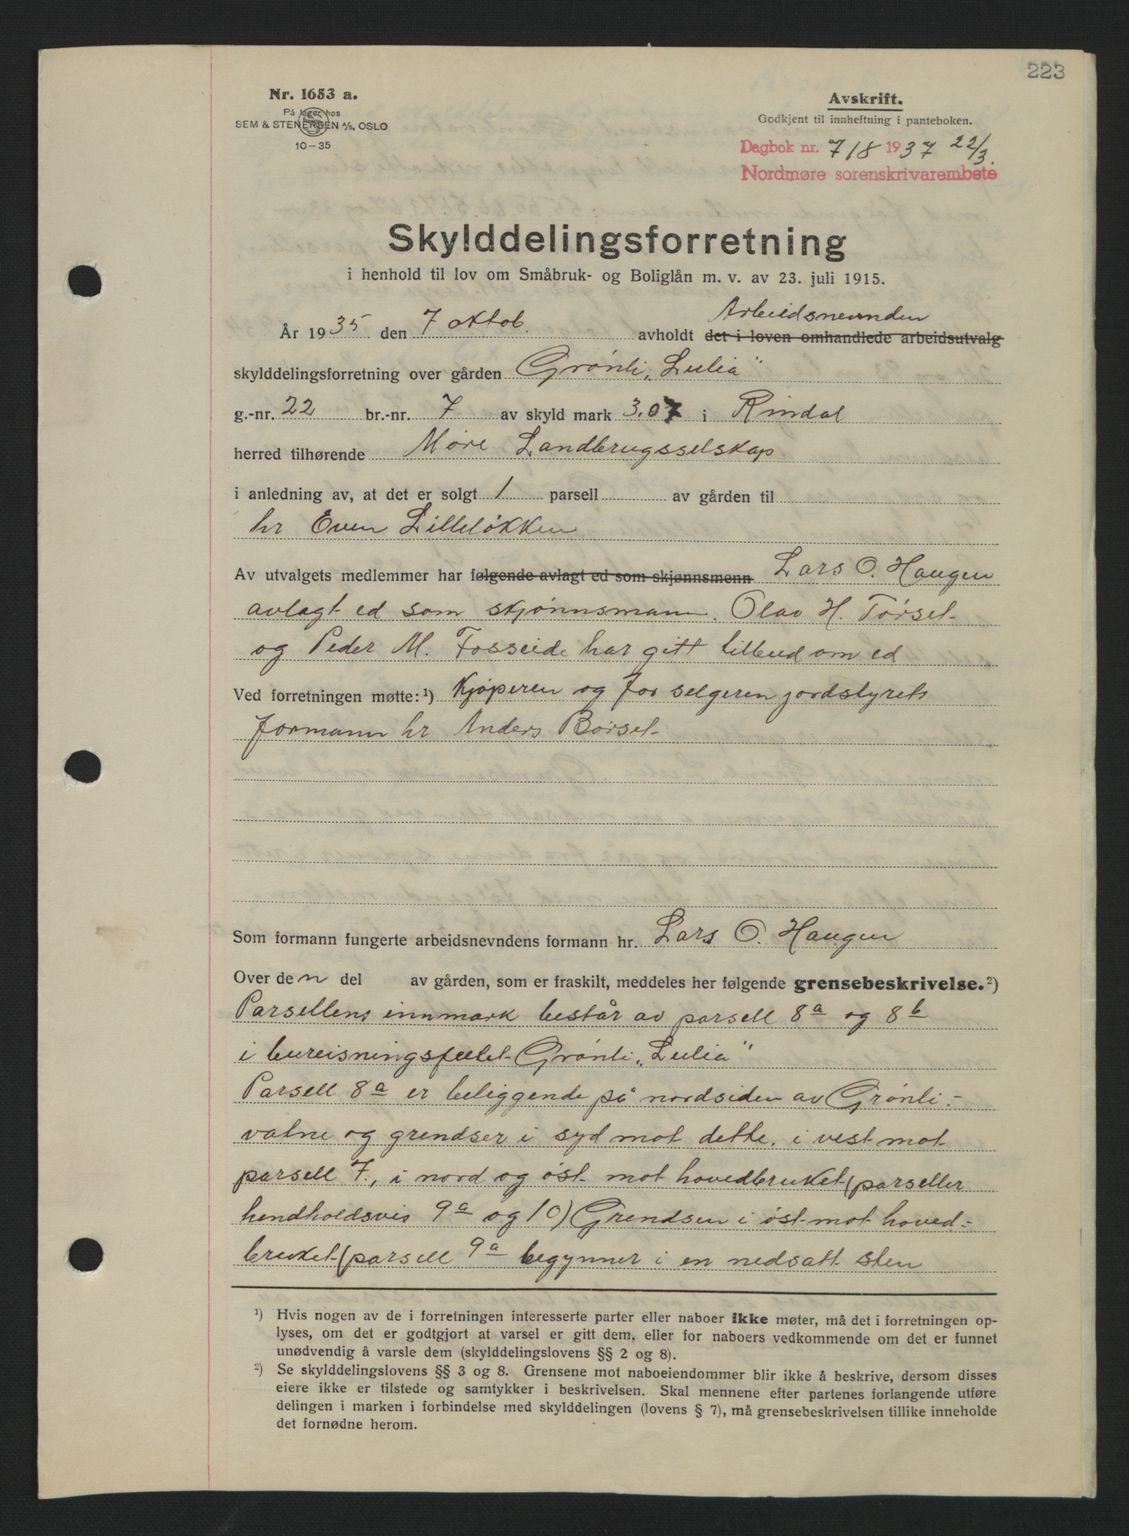 223
Nr. 1653 a.
På lager hos
SEM & STENERSEN A/S, OSLO
10–35
Avskrift.
Godkjent til innheftning i panteboken.
Dagbok nr. 718 1937 22/3.
Nordmøre sorenskrivarembete
Skylddelingsforretning
i henhold til lov om Småbruk- og Boliglån m. v. av 23. juli 1915.
Arbeidsnevnden
År 1935 den 7 oktob. avholdt det i loven omhandlede arbeidsutvalg
skylddelingsforretning over gården Grønli „Lulia"
g.-nr. 22 br.-nr. 7 av skyld mark 3.07 i Rindal
herred tilhørende Møre Landbrugsselskap
i anledning av, at det er solgt 1 parsell av gården til
hr Even Lilleløkken
Av utvalgets medlemmer har følgende avlagt ed som skjønnsmenn Lars O. Haugen
avlagt ed som skjønnsmann. Olav H. Tørset
og Peder M. Fosseide har gitt tilbud om ed
Ved forretningen møtte:¹) Kjøperen og for selgeren jordstyrets
formann hr Anders Børset
Som formann fungerte arbeidsnevndens formann hr. Lars O. Haugen
Over den del av gården, som er fraskilt, meddeles her følgende grensebeskrivelse.²)
Parsellens innmark består av parsell 8a og 8b
i bureisningsfeltet Grønli „Lulia"
Parsell 8a er beliggende på nordsiden av Grønli-
vatne og grendser i syd mot dette. i vest mot
parsell 7., i nord og øst mot hovedbruket (parseller
hendholdsvis 9a og 10) Grendsen i øst mot hoved-
bruket (parsell 9a begynner i en nedsatt sten
¹) Hvis nogen av de i forretningen interesserte parter eller naboer ikke møter, må det i forretningen op-
lyses, om det er godtgjort at varsel er gitt dem, eller for naboers vedkommende om det er funnet
unødvendig å varsle dem (skylddelingslovens §§ 2 og 8).
²) Se skylddelingslovens §§ 3 og 8. Grensene mot naboeiendommer blir ikke å beskrive, dersom disses
eiere ikke er tilstede og samtykker i beskrivelsen. Skal mennene efter partenes forlangende utføre
delingen i marken i forbindelse med skylddelingen (lovens § 7), må grensebeskrivelsen tillike inneholde
det fornødne herom.